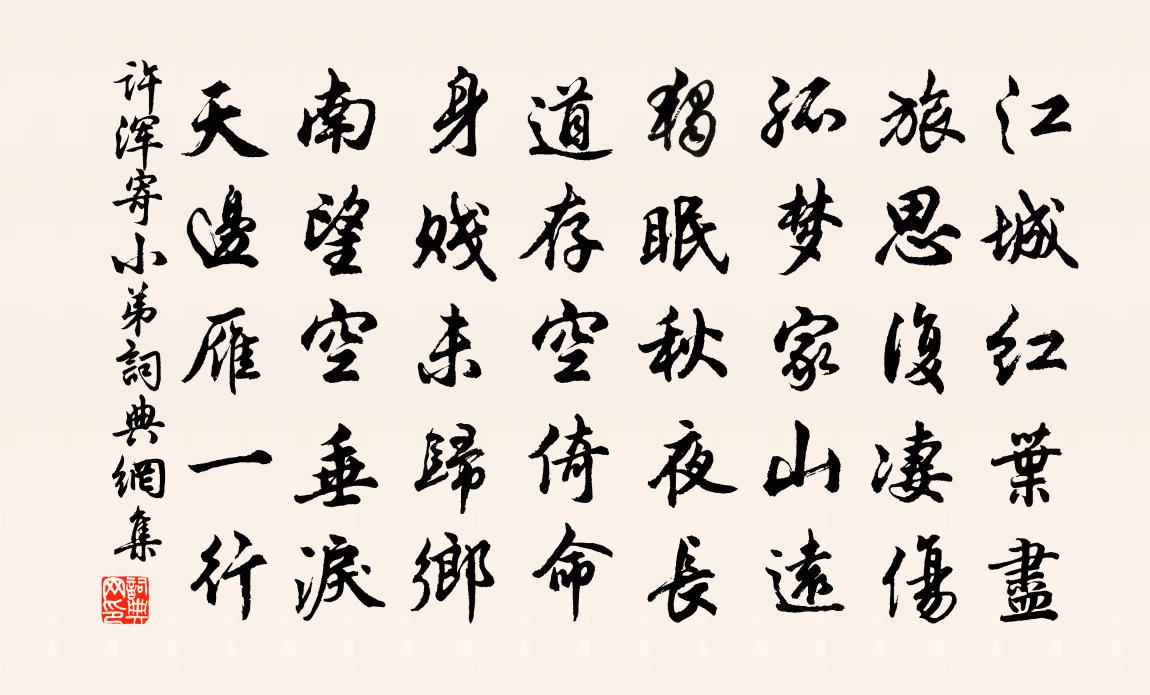 江城红葉盡
旅思復凄傷
孤梦家山遠
独眠秋夜長
道存空倚命
身贱未歸鄉
南望空垂淚
天邊雁一行
许浑寄小弟詞典網集
詞典網印